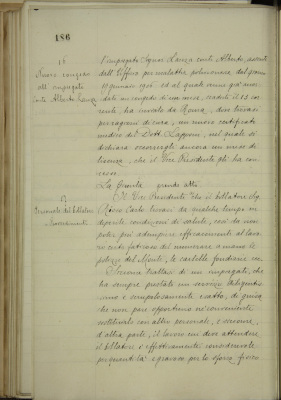 186
16
Nuovo congedo
all'impiegato
conte Alberto Lanza
L'impiegato Signor Lanza conte Alberto, assente
dall'Ufficio per malattia polmonare dal giorno
17 gennaio 1906 ed al quale venne già accor
dato un congedo di un mese, scaduto il 15 cor
rente, ha inviato da Roma, dove trovasi
per ragioni di cura, un nuovo certificato
medico del Dott. Lapponi, nel quale si
dichiara occorrergli ancora un mese di
licenza, che il Vice Presidente gli ha con
cesso.
La Giunta prende atto.
17
del bollatore
Il Vice Presidente che il bollatore Sig.
Carlo trovasi da qualche tempo in
deperite condizioni di salute, così da non
poter più adempiere efficacemente al lavo
ro certo faticoso del numerare a mano le
polizze del Monte, le cartelle fondiarie ecc.
Siccome trattasi di un impiegato, che
ha sempre prestato un servizio diligentis
simo e scrupolosamente esatto, di guisa
che non pare opportuno nè conveniente
sostituirlo con altro personale, e siccome,
d'altra parte, il lavoro cui deve attendere
il bollatore è effettivamente considerevole
per quantità e gravoso per lo sforzo fisico